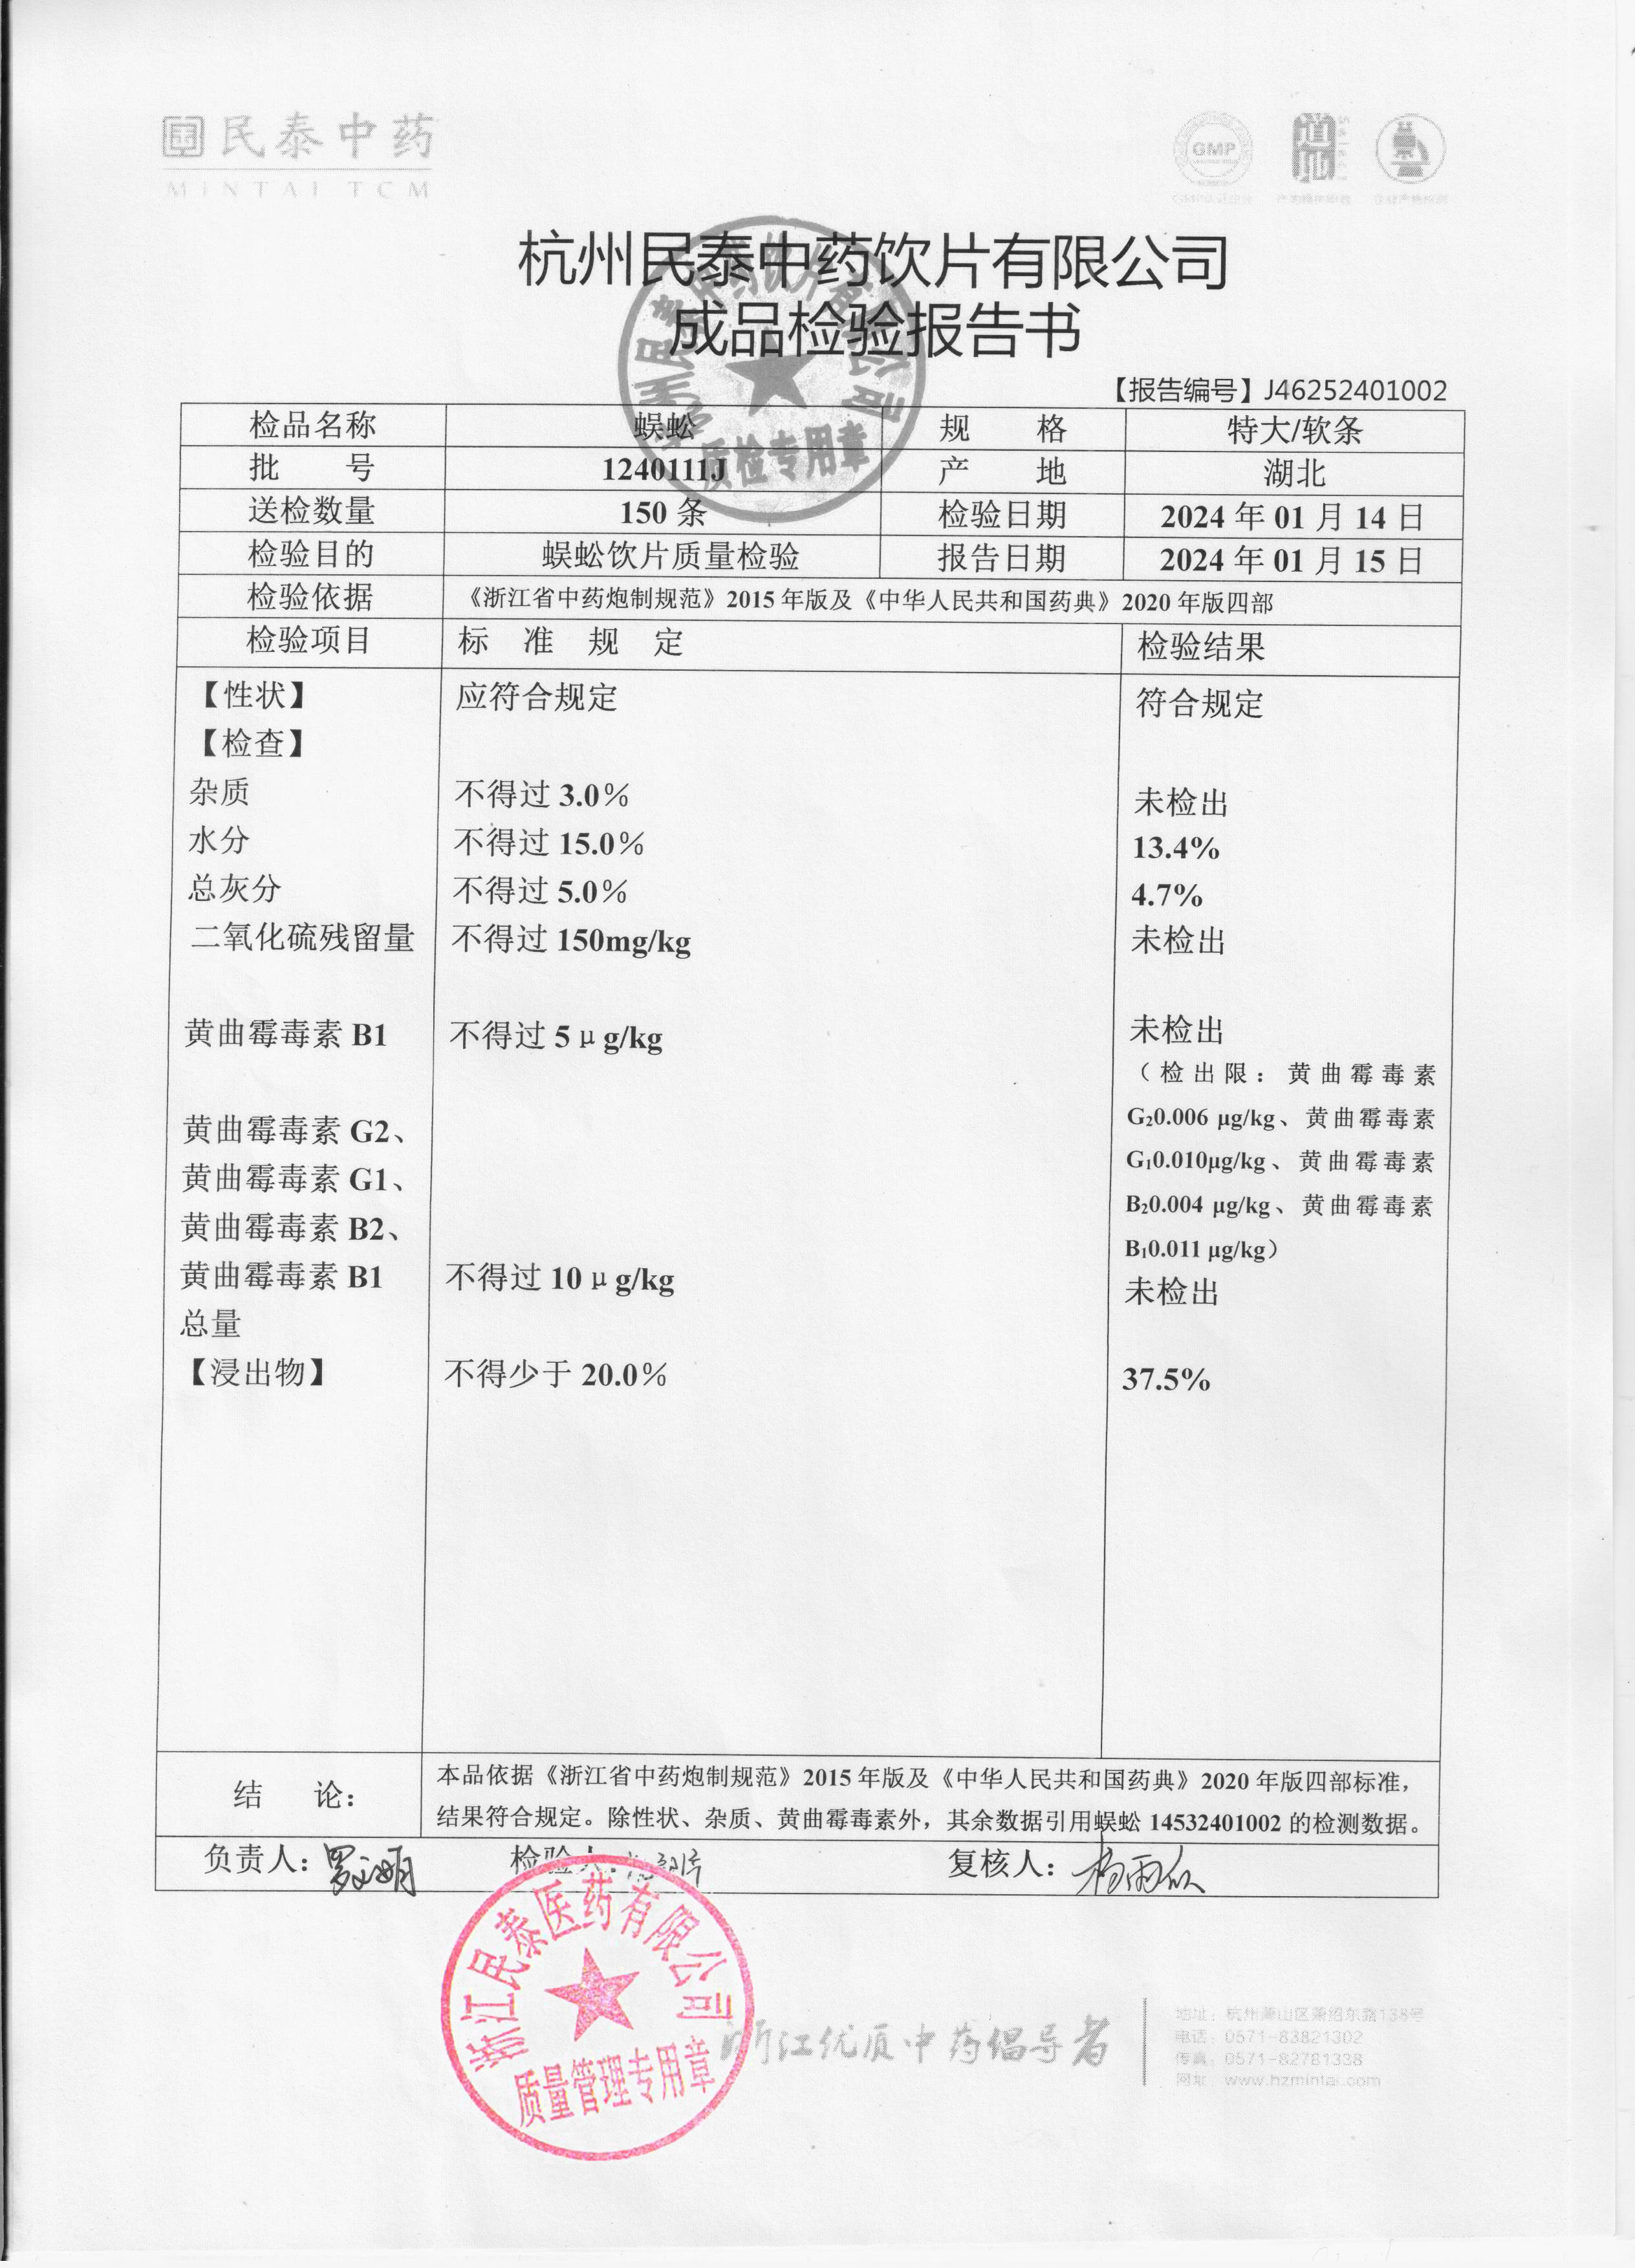 民泰中药
MINTAI TCM
GMP
杭州民泰中药饮片有限公司
成品检验报告书
【报告编号】J46252401002
检品名称 蜈蚣 规 格 特大/软条
批 号 1240111J 产 地 湖北
送检数量 150 条 检验日期 2024 年 01 月 14 日
检验目的 蜈蚣饮片质量检验 报告日期 2024 年 01 月 15 日
检验依据 《浙江省中药炮制规范》2015 年版及《中华人民共和国药典》2020 年版四部
检验项目 标 准 规 定 检验结果
【性状】 应符合规定 符合规定
【检查】
杂质 不得过 3.0% 未检出
水分 不得过 15.0% 13.4%
总灰分 不得过 5.0% 4.7%
二氧化硫残留量 不得过 150mg/kg 未检出
黄曲霉毒素 B1 不得过 5 μg/kg 未检出
（检出限：黄曲霉毒素
G₂0.006 μg/kg、黄曲霉毒素
G₁0.010μg/kg、黄曲霉毒素
B₂0.004 μg/kg、黄曲霉毒素
B₁0.011 μg/kg）
黄曲霉毒素 G2、
黄曲霉毒素 G1、
黄曲霉毒素 B2、
黄曲霉毒素 B1 不得过 10 μg/kg 未检出
总量
【浸出物】 不得少于 20.0% 37.5%
结 论： 本品依据《浙江省中药炮制规范》2015 年版及《中华人民共和国药典》2020 年版四部标准，
结果符合规定。除性状、杂质、黄曲霉毒素外，其余数据引用蜈蚣 14532401002 的检测数据。
负责人： 检验人： 复核人：
杭州民泰中药饮片有限公司
质检专用章
浙江民泰医药有限公司
质量管理专用章
浙江优质中药倡导者
地址：杭州萧山区萧绍东路138号
电话：0571-83821302
传真：0571-82781338
网址：www.hzmintai.com